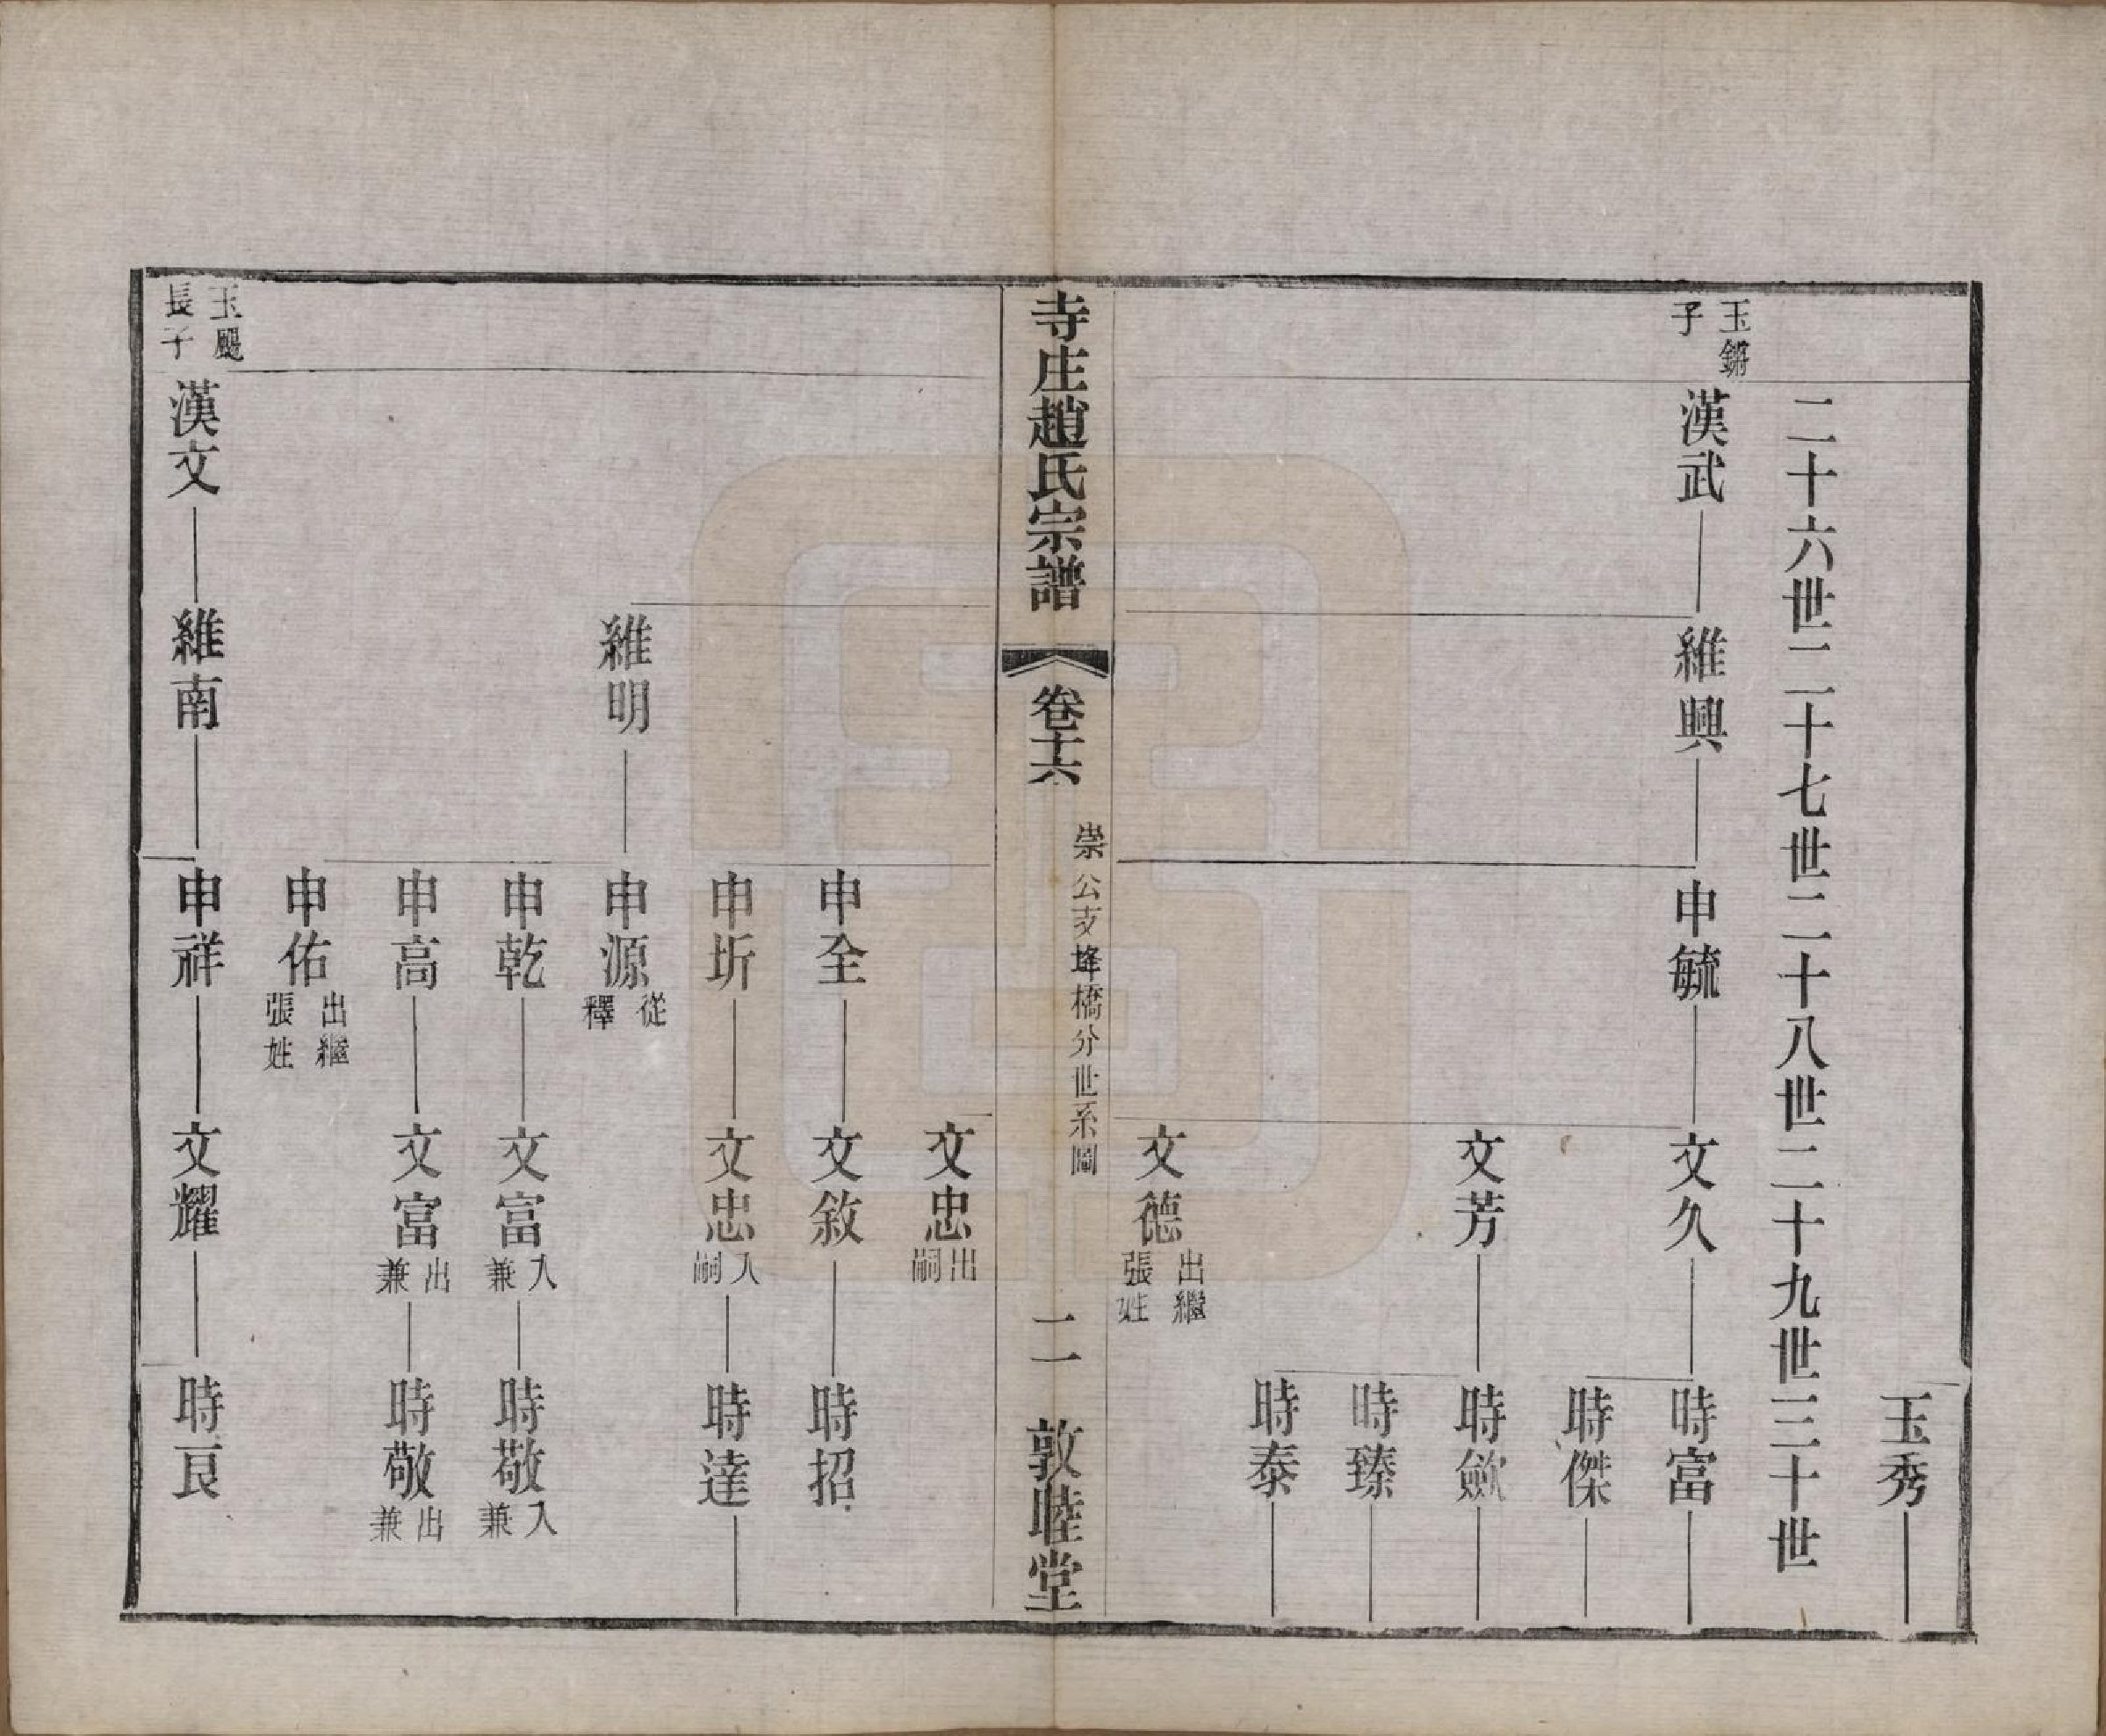 玉秀
二十六世二十七世二十八世二十九世三十世
玉鏘子
漢武 維興 申毓 文久 時富
時傑
文芳 時歛
時臻
時泰
文德 出繼張姓
寺庄趙氏宗譜 卷十六 崇公支埄橋分世系圖 二 敦睦堂
文忠 出嗣
申全 文敘 時招
申圻 文忠 入嗣 時達
維明 申源 從釋
申乾 文富 入兼 時敬 入兼
申高 文富 出兼 時敬 出兼
申佑 出繼張姓
玉颺長子
漢文 維南 申祥 文耀 時良